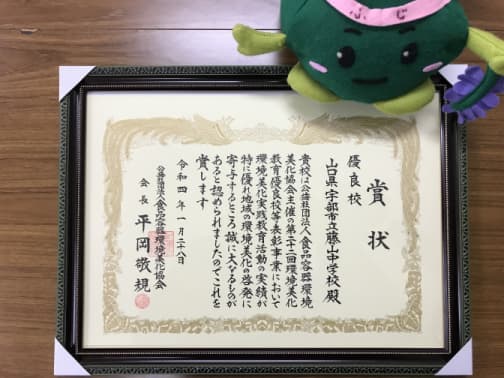 ふじ
賞状
優良校
山口県宇部市立藤山中学校殿
貴校は公益社団法人食品容器環境
美化協会主催の第二十二回環境美化
教育優良校等表彰事業において
環境美化実践教育活動の実績が
特に優れ地域の環境美化の啓発に
寄与するところ誠に大なるものが
あると認められましたのでこれを
賞します
令和四年一月二十八日
公益社団法人食品容器環境美化協会
会長 平岡敬規